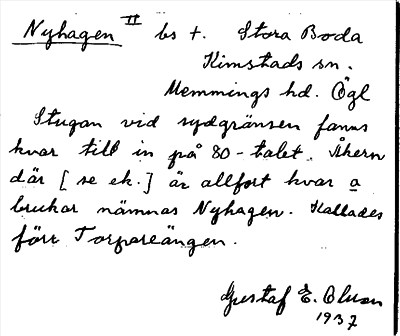 Nyhagen II bs t. Stora Boda
Kimstads sn.
Memmings hd. Ögl
Stugan vid sydgränsen fanns
kvar till in på 80-talet. Åkern
där [se ek.] är allfort kvar o
brukar nämnas Nyhagen. Kallades
förr Torpareängen.
Gustaf E. Olson
1937